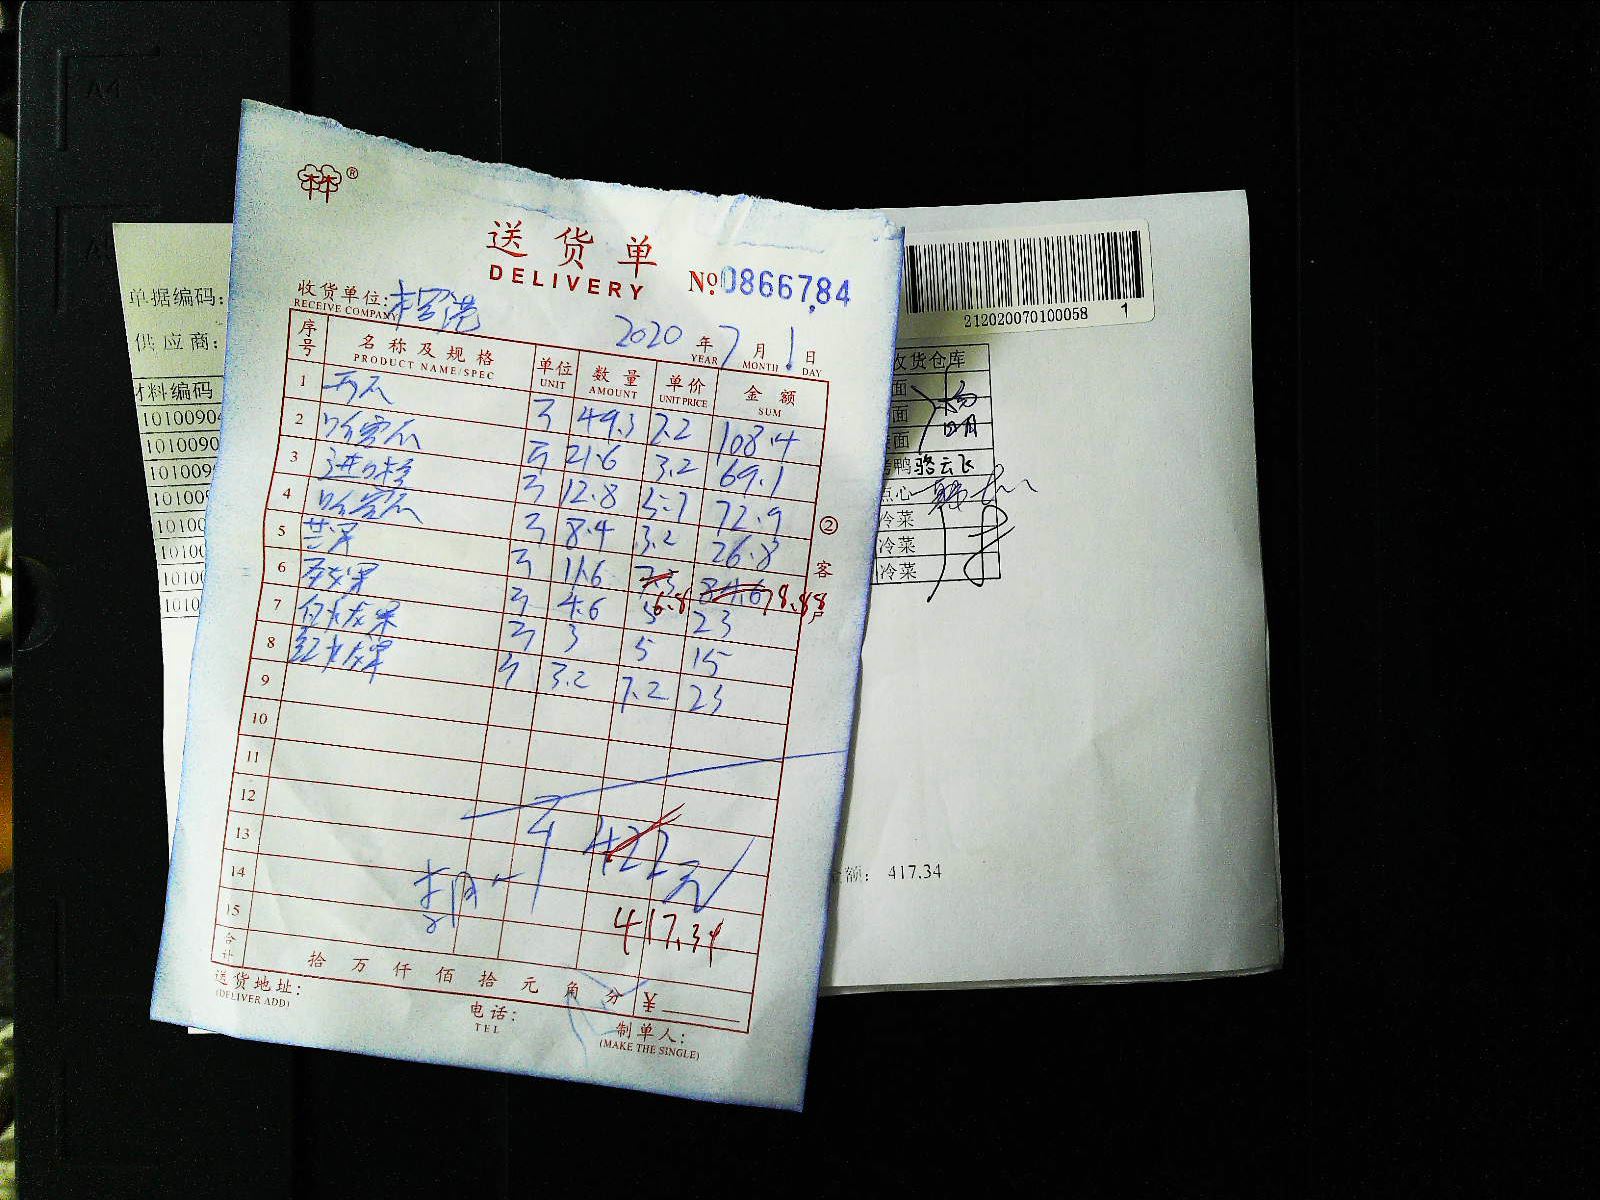 林®
送货单
DELIVERY
No 0866784
收货单位:
RECEIVE COMPANY
2020 年 7 月 1 日
YEAR MONTH DAY
序号 名称及规格 单位 数量 单价 金额
PRODUCT NAME/SPEC UNIT AMOUNT UNIT PRICE SUM
1 西瓜 斤 49.3 2.2 108.4
2 哈密瓜 斤 21.6 3.2 69.1
3 进口橙 斤 12.8 5.7 72.9
4 哈密瓜 斤 8.4 3.2 26.8
5 斤 11.6 7.5 84.6
6.8 78.88
6 斤 4.6 5 23
7 白火龙果 斤 3 5 15
8 红火龙果 斤 3.2 7.2 23
9
10
11
12
13
14
15
422元
417.34
合计 拾 万 仟 佰 拾 元 角 分 ¥
送货地址:
(DELIVER ADD)
电话:
TEL
制单人:
(MAKE THE SINGLE)
② 客户
单据编码:
供应商:
材料编码
1010090
1010090
101009
101009
10100
1010
1010
1010
212020070100058 1
收货仓库
面
面
面
烤鸭 骆云飞
点心
冷菜
冷菜
冷菜
额: 417.34